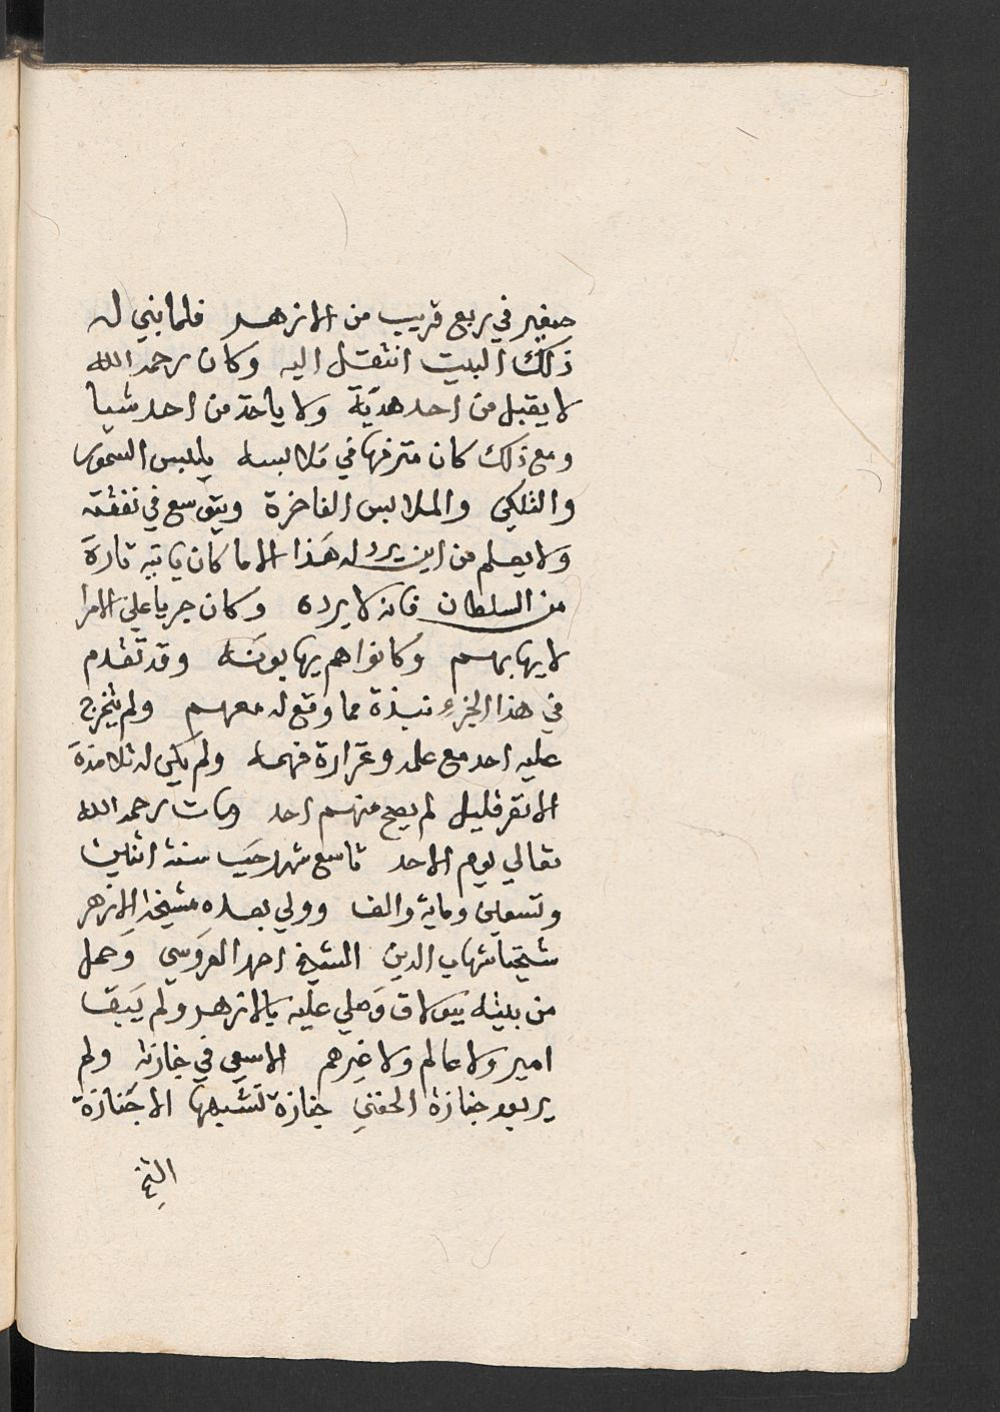 صغير في ربع قريب من الازهر فلما بني له
ذلك البيت انتقل اليه وكان رحمه الله
لا يقبل من احد هدية ولا ياخذ من احد شيا
ومع ذلك كان مترفها في ملابسه يلبس السمور
والفلكي والملابس الفاخرة ويتوسع في نفقته
ولا يعلم من اين يرد له هذا الا ما كان ياتيه تارة
من السلطان فانه لا يرده وكان جريا علي الامرا
لا يهابهم وكانوا هم يهابونه وقد تقدم
في هذا الجزء نبذة مما وقع له معهم ولم يتخرج
عليه احد مع علمه وغزارة فهمه ولم يكن له تلامذة
الا نفر قليل لم ينجح منهم احد ومات رحمه الله
تعالي يوم الاحد تاسع شهر رجب سنة اثنين
وتسعين وماية والف وولي بعده مشيخة الازهر
شيخنا شهاب الدين الشيخ احمد العروسي وحمل
من بيته ببولاق وصلي عليه بالازهر ولم يبقا
امير ولا عالم ولا غيرهم الا سعي في جنازته ولم
ير بعد جنازة الحفني جنازة تشبهها الا جنازة
الشيخ